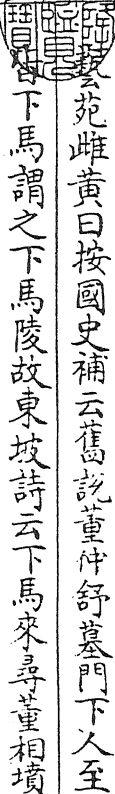 藝苑雌黄曰按國史補云舊説董仲舒墓門下人至
皆下馬謂之下馬陵故東坡詩云下馬來尋董相墳